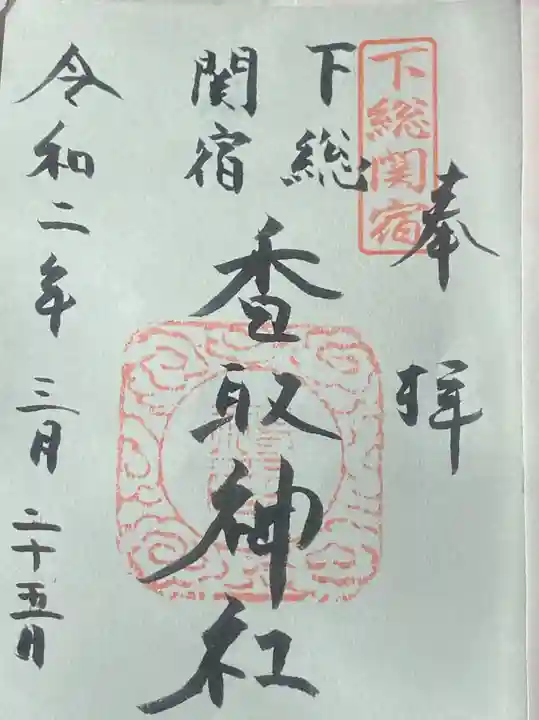 下総関宿
奉拝
下総
関宿
香取神社
令和二年三月二十五日